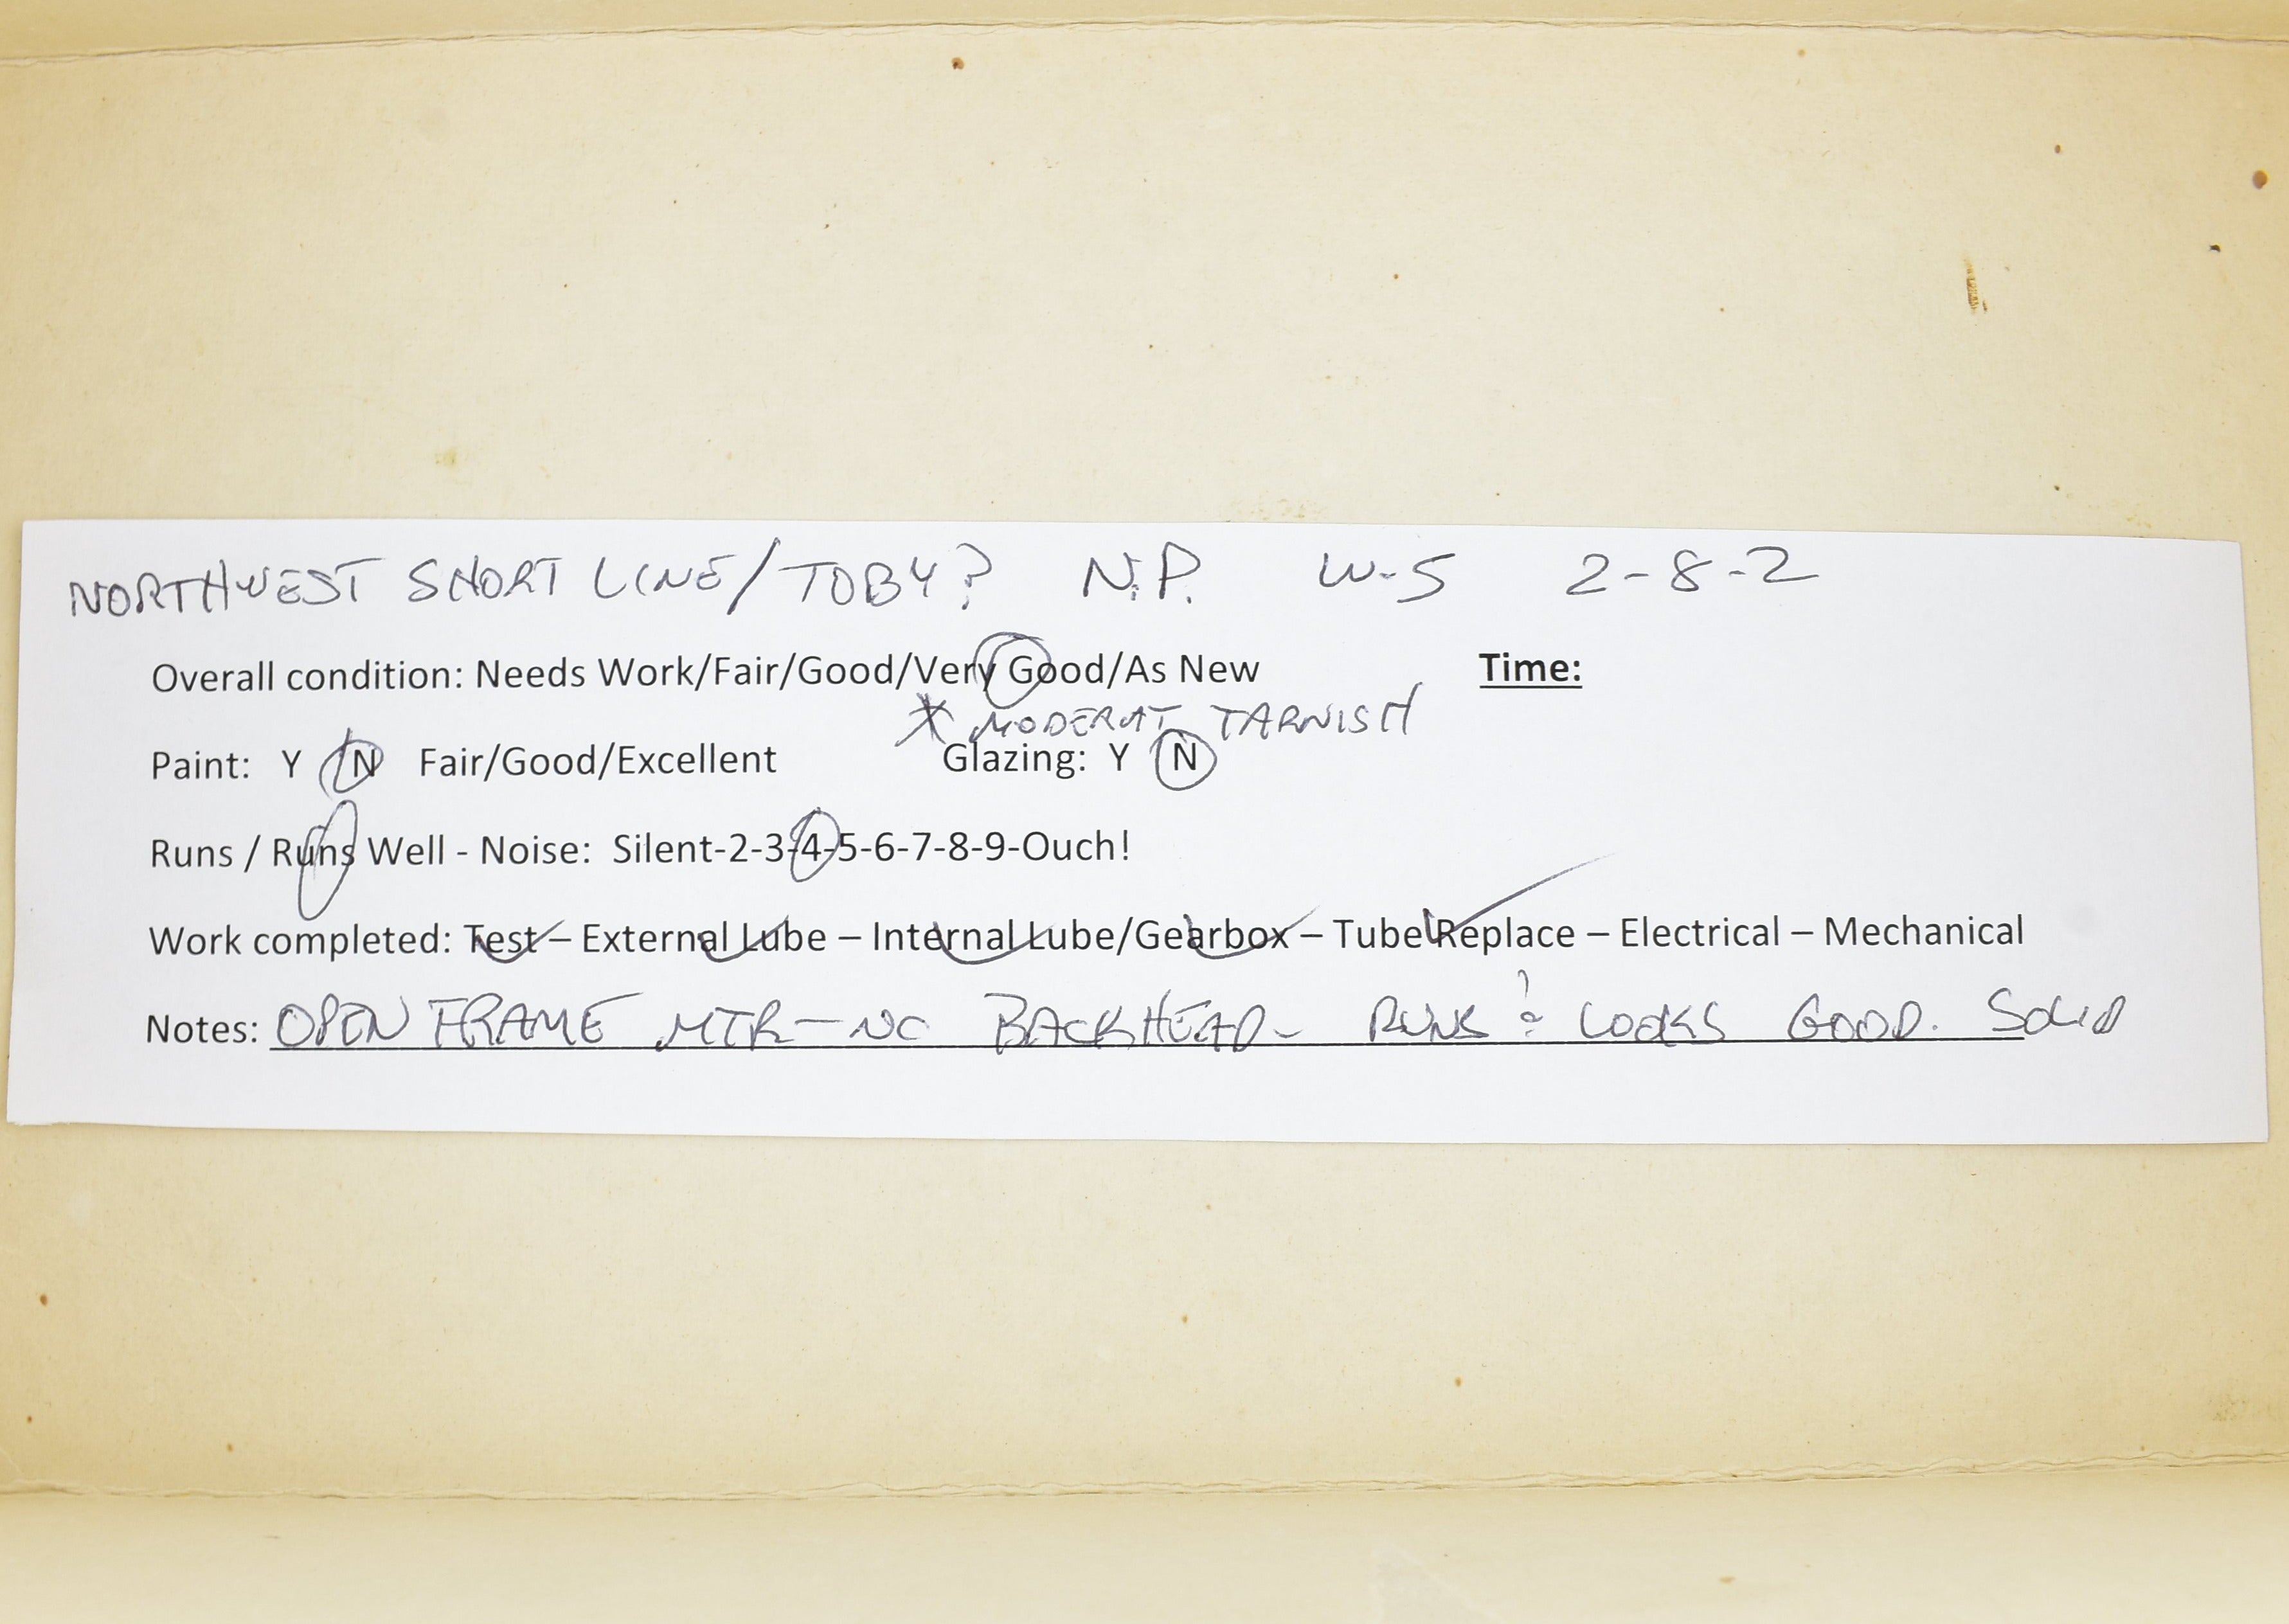 NORTHWEST SHORT LINE/TOBY? N.P. W-5 2-8-2
Overall condition: Needs Work/Fair/Good/Very Good/As New Time:
* MODERAT TARNISH
Paint: Y N Fair/Good/Excellent Glazing: Y N
Runs / Runs Well - Noise: Silent-2-3-4-5-6-7-8-9-Ouch!
Work completed: Test – External Lube – Internal Lube/Gearbox – Tube Replace – Electrical – Mechanical
Notes: OPEN FRAME MTR – NO BACKHEAD – RUNS & LOOKS GOOD. SOLID